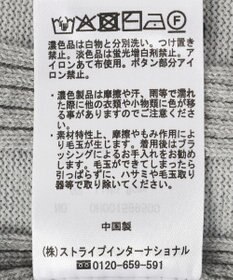 濃色品は白物と分別洗い。つけ置き
禁止。淡色品は蛍光増白剤禁止。アイ
ロンあて布使用。ボタン部分アイ
ロン禁止。
●濃色製品は摩擦や汗、雨等で濡れ
た際に他の衣類や小物類に色が移
る事がありますのでご注意下さ
い。
●素材特性上、摩擦やもみ作用によ
り毛玉が生じます。着用後はブラ
ッシングによるお手入れをお勧め
します。毛玉ができてしまったら
引っぱらずに、ハサミや毛玉取り
器等で取り除いて下さい。
中国製
(株)ストライプインターナショナル
0120-659-591